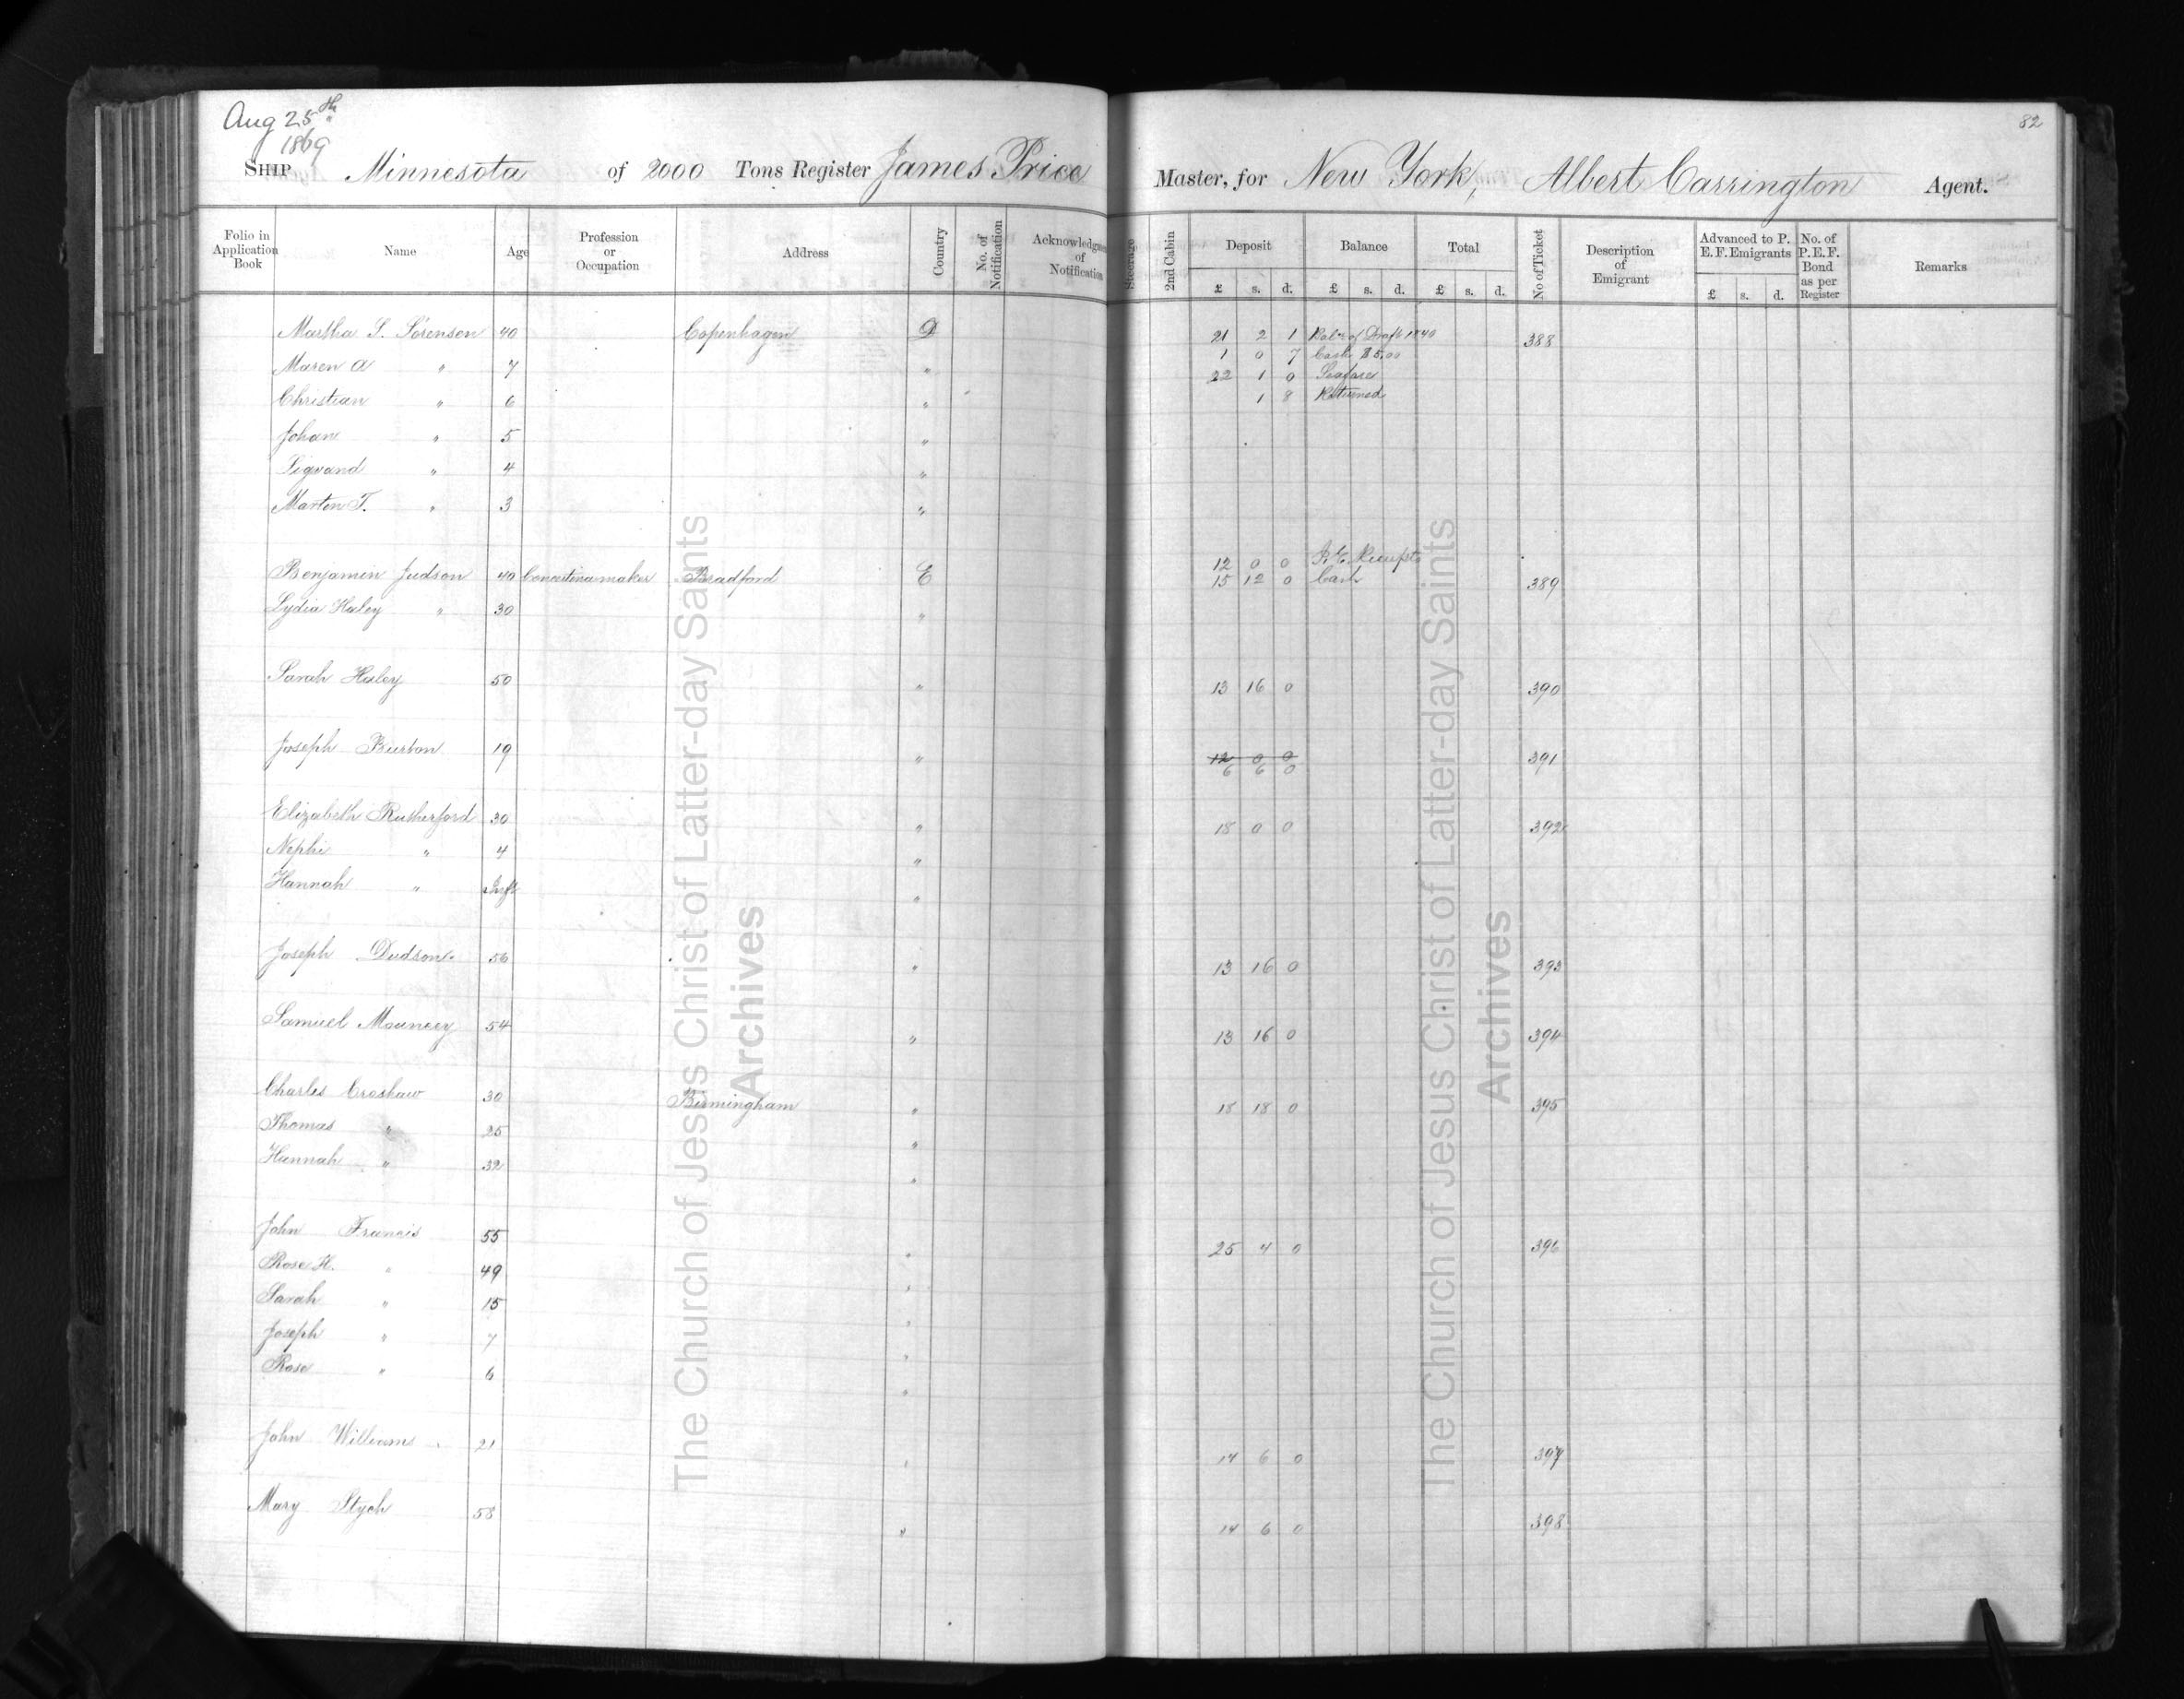 Aug 25th 1869
82
SHIP Minnesota of 2000 Tons Register James Price Master, for New York, Albert Carrington Agent.
Folio in Application Book Name Age Profession or Occupation Address Country No. of Notification Acknowledgment of Notification Steerage 2nd Cabin Deposit £ s. d. Balance £ s. d. Total £ s. d. No of Ticket Description of Emigrant Advanced to P. E. F. Emigrants £ s. d. No. of P. E. F. Bond as per Register Remarks
Martha S. Sorensen 40 Copenhagen D 21 2 1 Balce of Draft 1840 388
Maren A " 7 " 1 0 7 Cash $5.00
Christian " 6 " 22 1 0 Seafares
1 8 Returned
Johane " 5 "
Sigvand " 4 "
Marten T. " 3 "
12 0 0
Benjamin Judson 40 Concertina maker Bradford E 15 12 0 Cash 389
Lydia Haley " 30 "
Sarah Haley 50 " 13 16 0 390
Joseph Burton 19 " 12 0 0 391
6 6 0
Elizabeth Rutherford 30 " 18 0 0 392
Nephi " 4 "
Hannah " Inft "
Joseph Dudson 56 " 13 16 0 393
Samuel Mouncey 54 " 13 16 0 394
Charles Croshaw 30 Birmingham " 18 18 0 395
Thomas " 25 "
Hannah " 32 "
John Francis 55 " 25 4 0 396
Rose H. " 49 "
Sarah " 15 "
Joseph " 7 "
Rose " 6 "
John Williams 21 " 14 6 0 397
Mary Stych 58 " 14 6 0 398
The Church of Jesus Christ of Latter-day Saints
Archives
The Church of Jesus Christ of Latter-day Saints
Archives